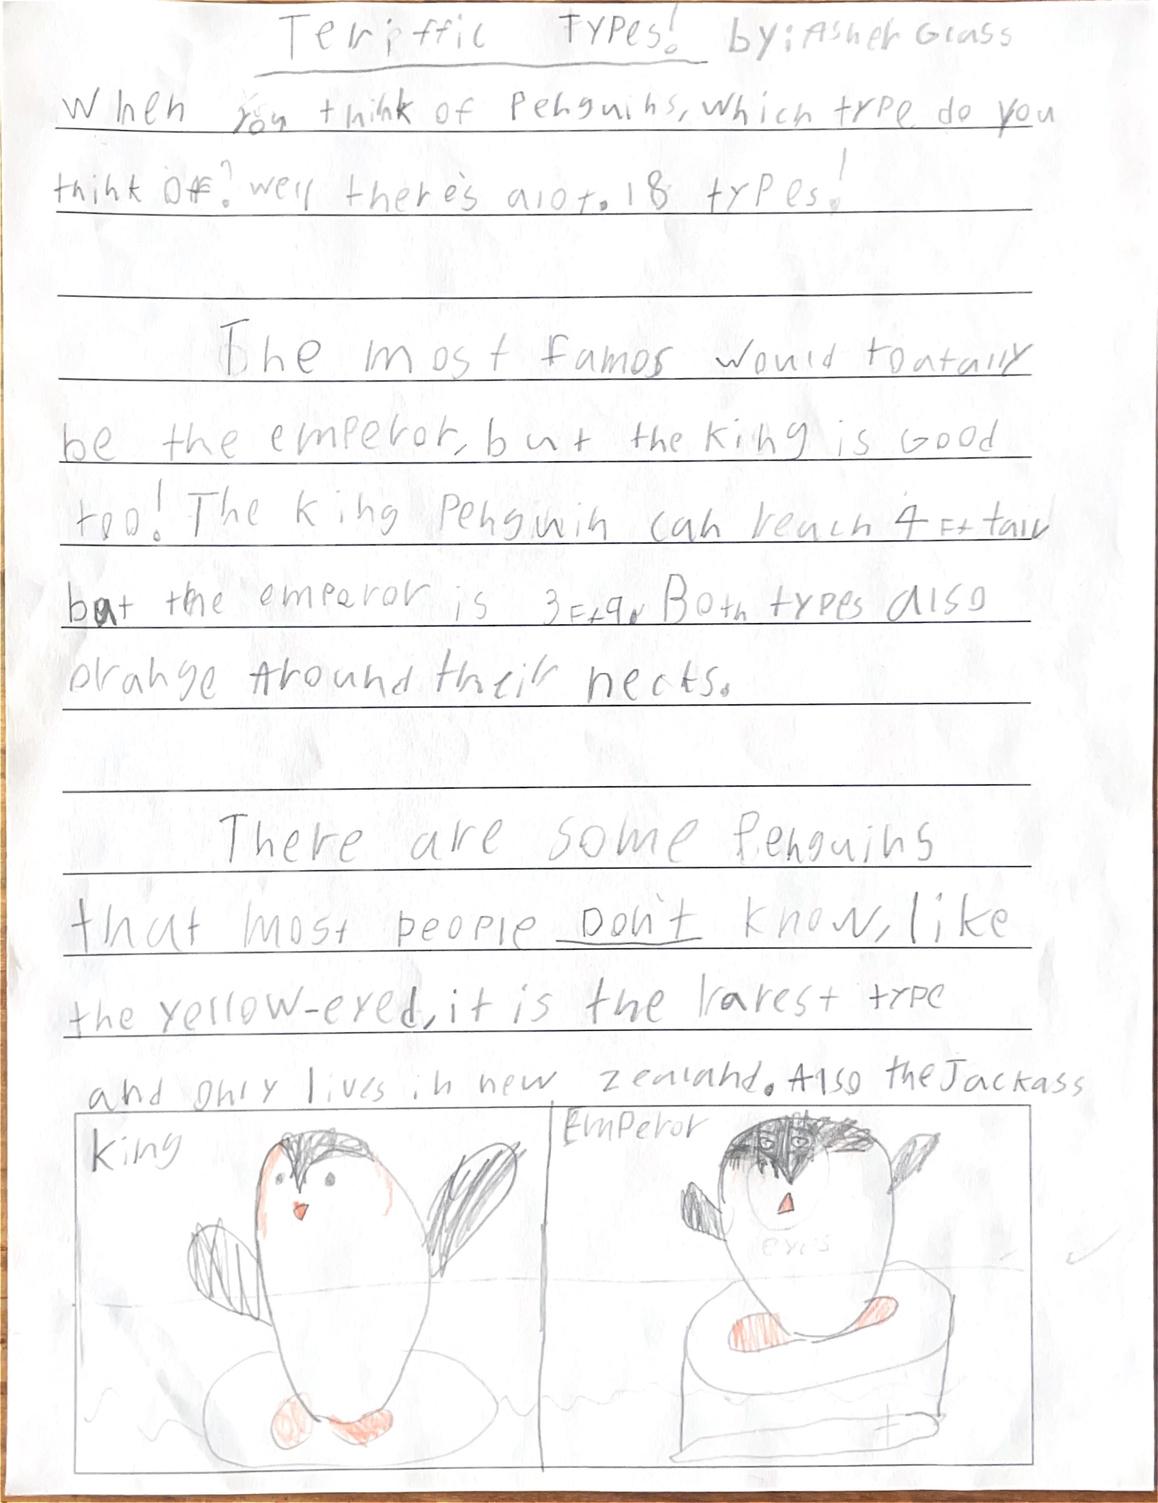 Teriffic Types! by: Asher Grass
When you think of Penguins, which type do you
think Off? well there's alot. 18 types!
The most famos would toatally
be the emperor, but the king is Good
too! The king Penguin can reach 4 Ft tall
but the emperor is 3 Ft 9. Both types also
orange Around their necks.
There are some Penguins
that most people Don't know, like
the yellow-eyed, it is the rarest type
and only lives in new zealand. Also the Jackass
King
Emperor
eyes